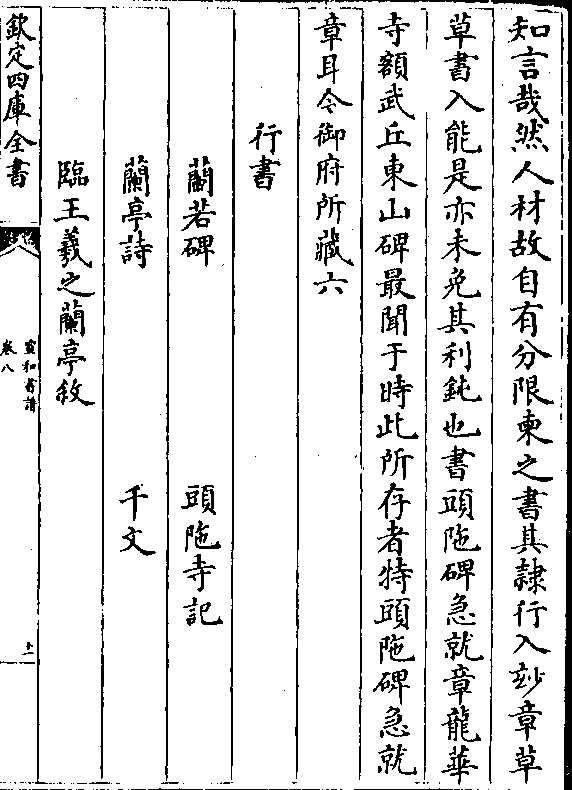 知言哉然人材故自有分限柬之書其隸行入妙章草
草書入能是亦未免其利鈍也書頭陁碑急就章龍華
寺額武丘東山碑最聞于時此所存者特頭陁碑急就
章耳今御府所藏六
行書
蘭若碑 頭陁寺記
蘭亭詩 千文
臨王羲之蘭亭敘
欽定四庫全書
宣和書譜
卷八
十一